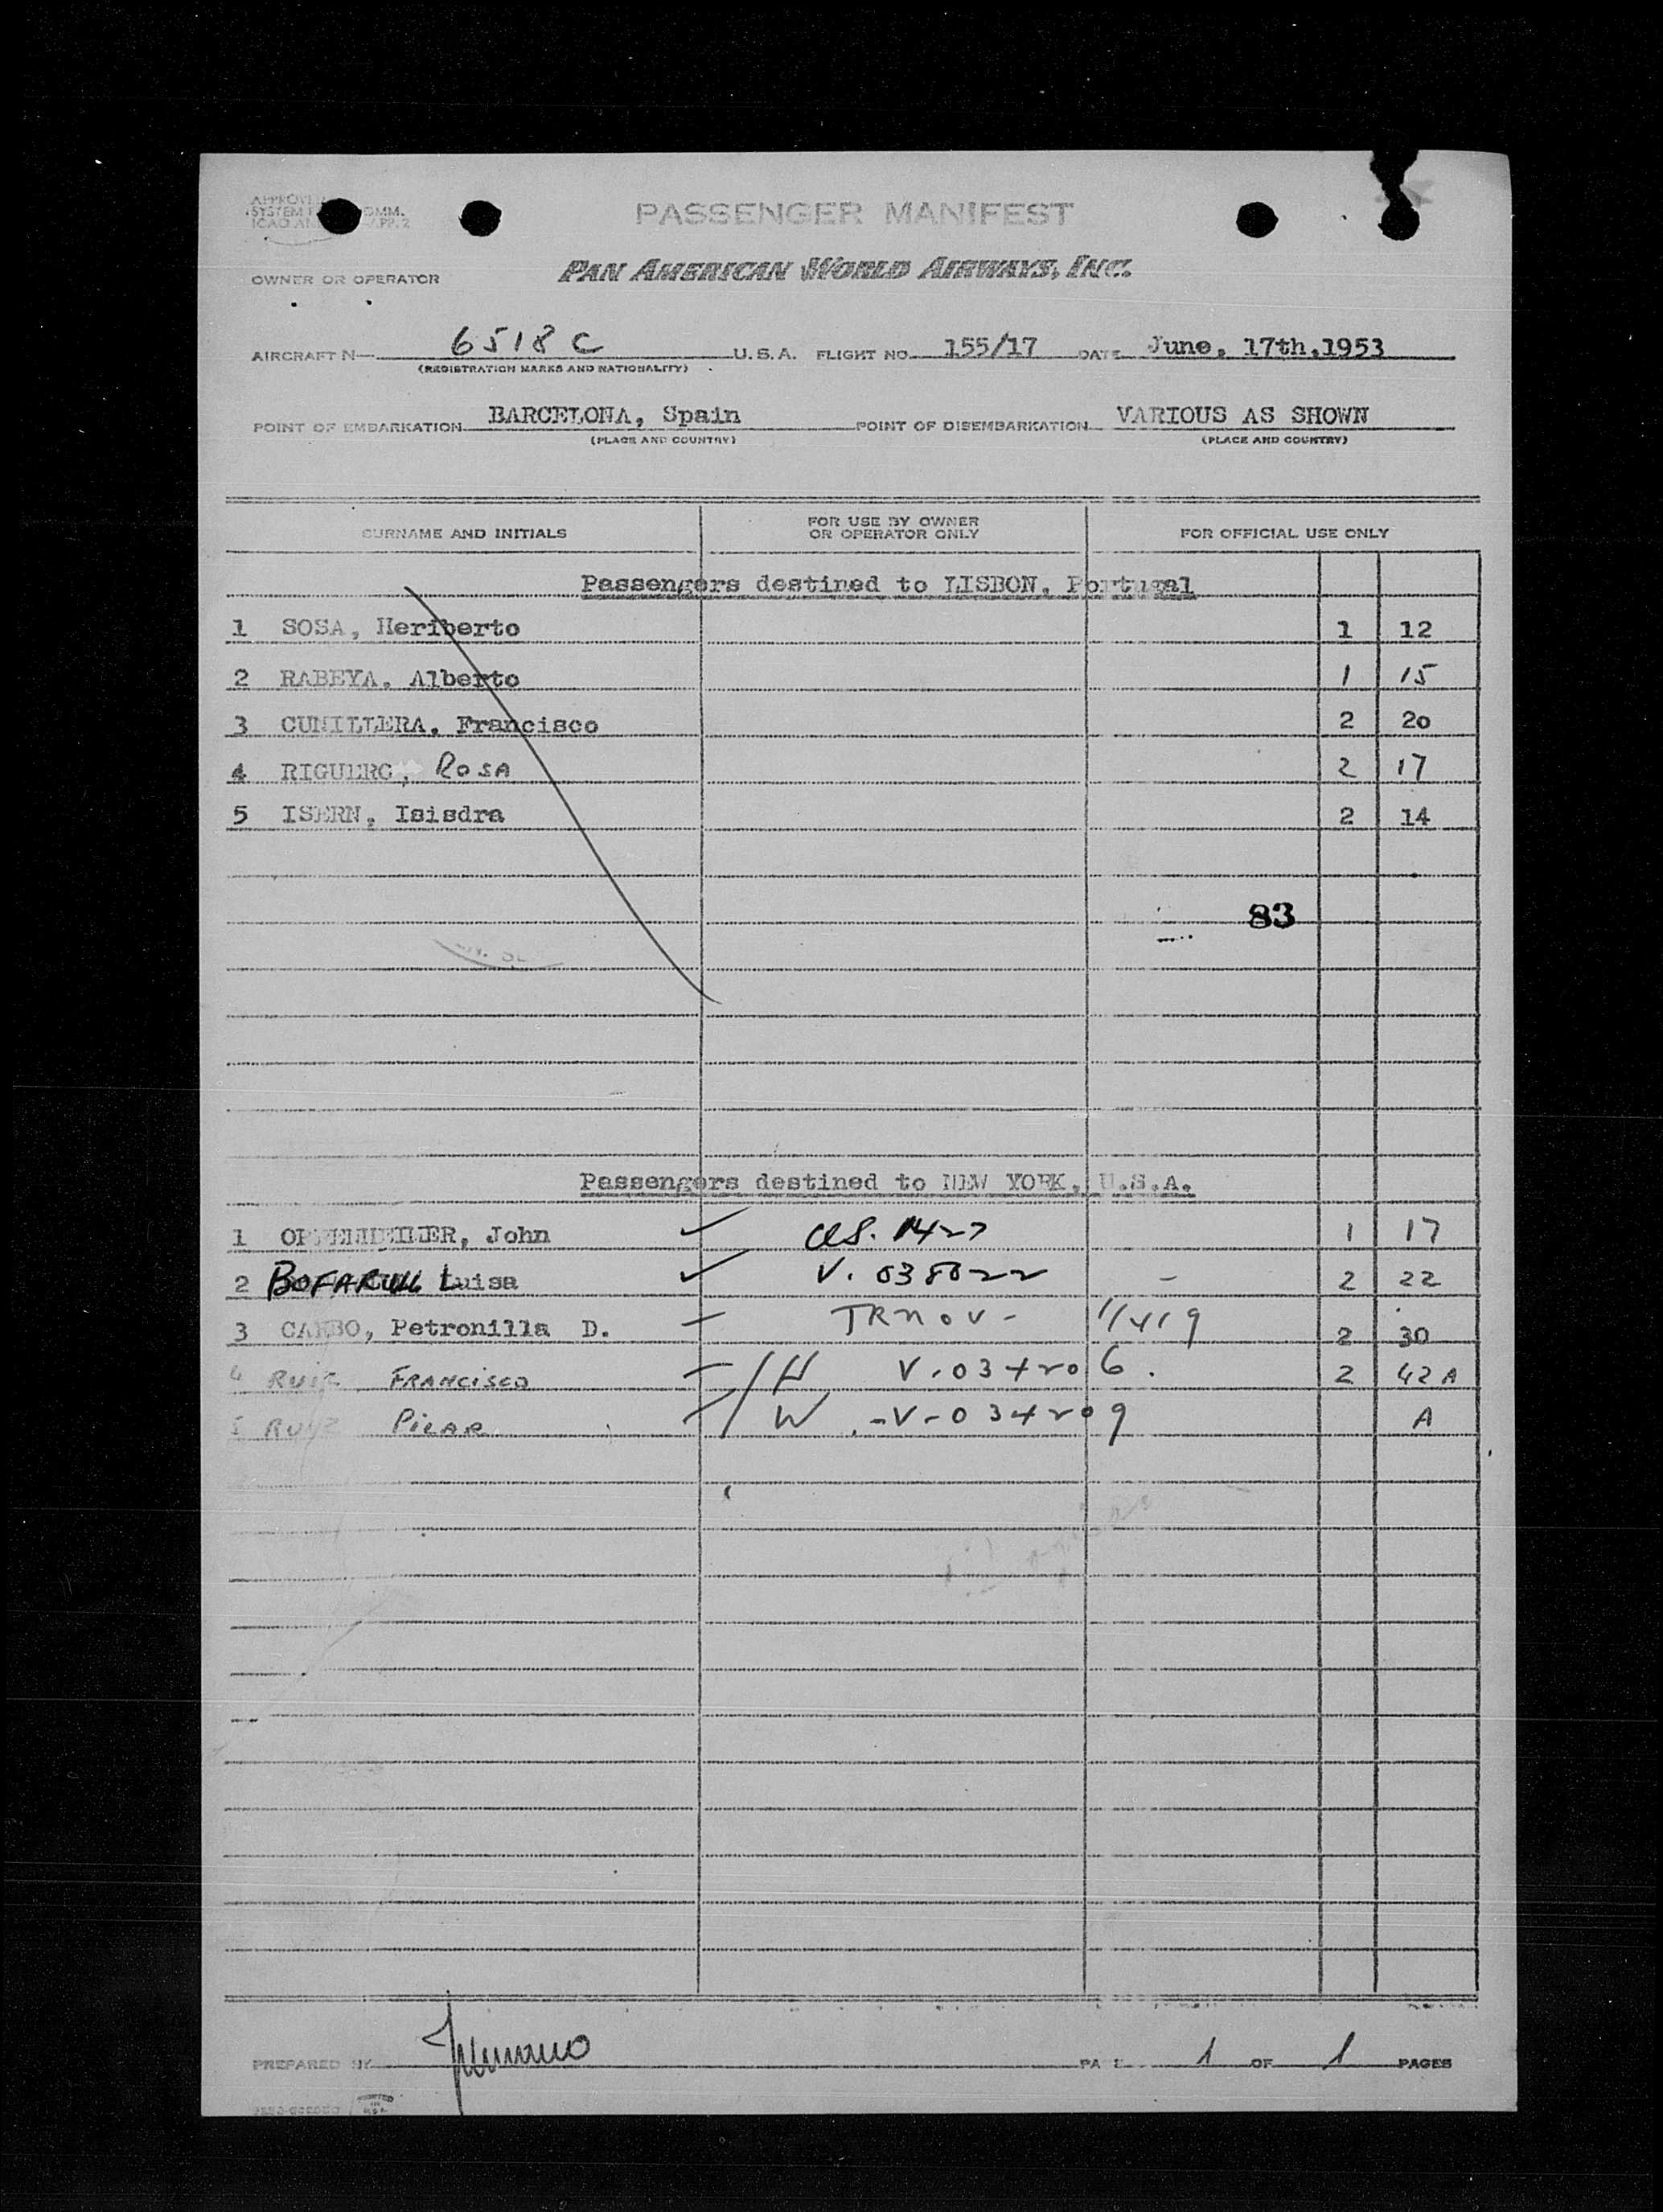 PASSENGER MANIFEST
OWNER OR OPERATOR PAN AMERICAN WORLD AIRWAYS, INC.
AIRCRAFT N- 6518C U.S.A. FLIGHT NO. 155/17 DATE June, 17th,1953
(REGISTRATION MARKS AND NATIONALITY)
POINT OF EMBARKATION BARCELONA, Spain POINT OF DISEMBARKATION VARIOUS AS SHOWN
(PLACE AND COUNTRY) (PLACE AND COUNTRY)
SURNAME AND INITIALS FOR USE BY OWNER OR OPERATOR ONLY FOR OFFICIAL USE ONLY
Passengers destined to LISBON, Portugal
1 SOSA, Heriberto 1 12
2 RABEYA, Alberto 1 15
3 CUNILLERA, Francisco 2 20
4 RIGUERO, ROSA 2 17
5 ISERN, Isisdra 2 14
83
Passengers destined to NEW YORK, U.S.A.
1 John ✓ 1427 1 17
2 BOFARULL Luisa ✓ V. 038022 - 2 22
3 CARBO, Petronilla D. 2 30
4 RUIZ FRANCISCO H V.034206. 2 42A
5 RUIZ PILAR W -V-034209 A
PREPARED BY PAGE 1 OF 1 PAGES